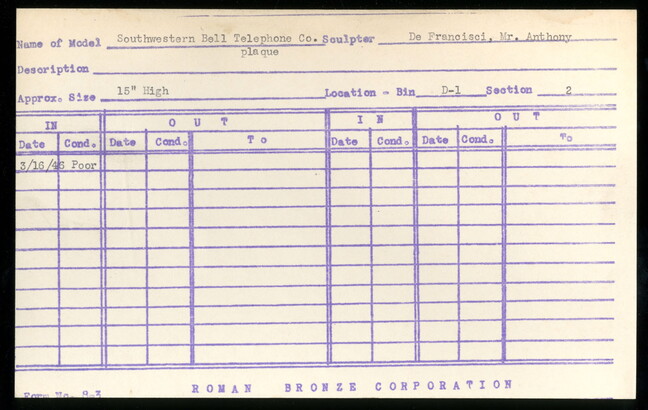 Name of Model Southwestern Bell Telephone Co. Sculptor De Francisci, Mr. Anthony
plaque
Description
Approx. Size 15" High Location - Bin D-1 Section 2
IN OUT IN OUT
Date Cond. Date Cond. To Date Cond. Date Cond. To
3/16/46 Poor
ROMAN BRONZE CORPORATION
Form No. 8-3